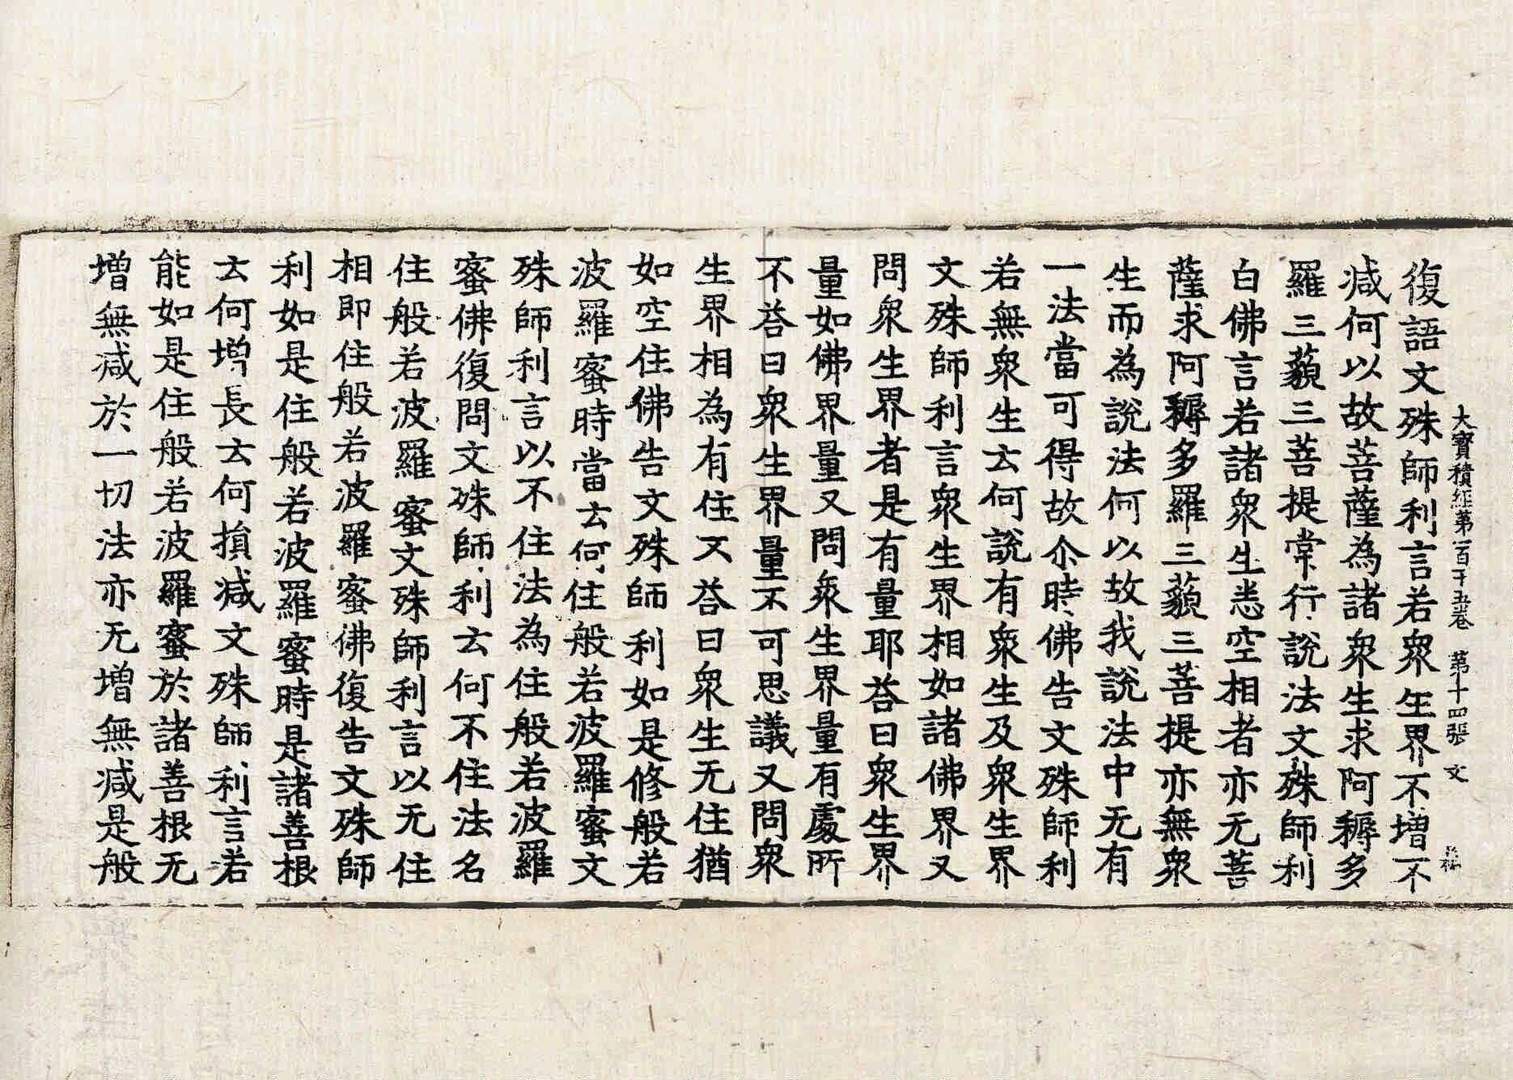 大寶積經第一百十五卷　第十四張　文
復語文殊師利言若衆生界不增不
減何以故菩薩為諸衆生求阿耨多
羅三藐三菩提常行說法文殊師利
白佛言若諸衆生悉空相者亦无菩
薩求阿耨多羅三藐三菩提亦無衆
生而為說法何以故我說法中无有
一法當可得故尒時佛告文殊師利
若無衆生云何說有衆生及衆生界
文殊師利言衆生界相如諸佛界又
問衆生界者是有量耶荅曰衆生界
量如佛界量又問衆生界量有處所
不荅曰衆生界量不可思議又問衆
生界相為有住又荅曰衆生无住猶
如空住佛告文殊師利如是修般若
波羅蜜時當云何住般若波羅蜜文
殊師利言以不住法為住般若波羅
蜜佛復問文殊師利云何不住法名
住般若波羅蜜文殊師利言以无住
相即住般若波羅蜜佛復告文殊師
利如是住般若波羅蜜時是諸善根
云何增長云何損減文殊師利言若
能如是住般若波羅蜜於諸善根无
增無減於一切法亦无增無減是般